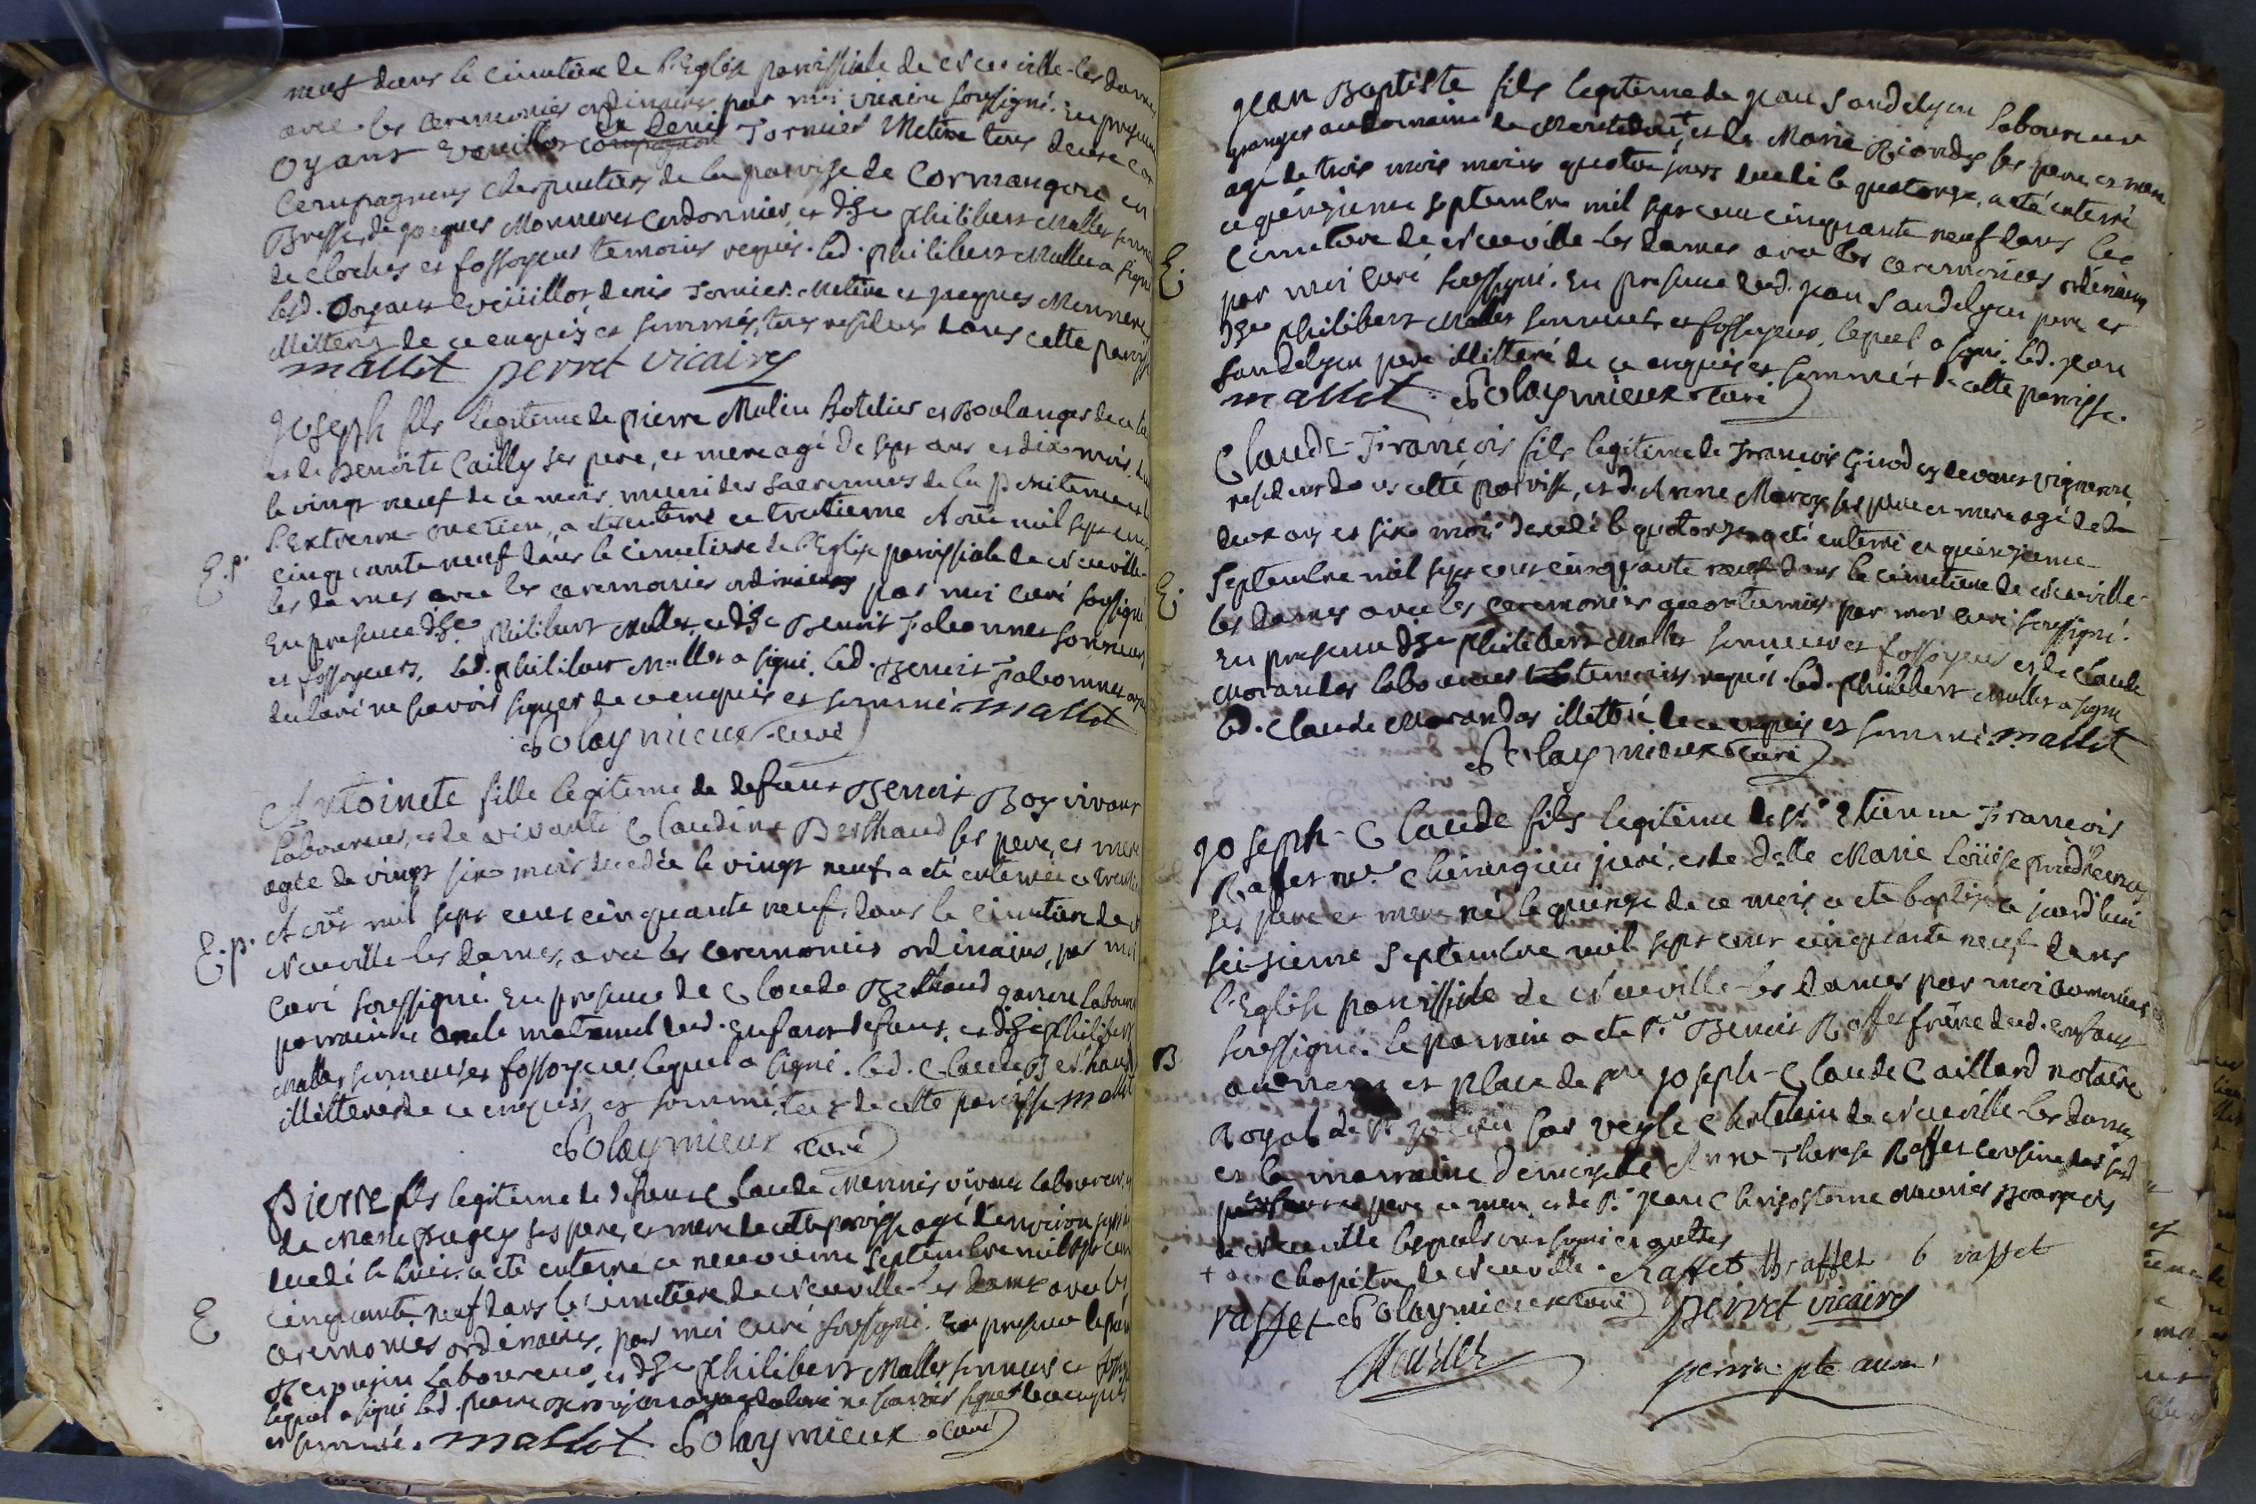 neuf dans le cimetiere de l'Eglise parroissiale de Neuville-les dames
avec les ceremonies ordinaires par moi vicaire soussigné. En presence
Oyant Evouillot compagnon de Denis Tornier Metive tous deux
Compagnons charpentiers de la paroisse de Cormangou en
Bresse, de jacques Monneret Cordonnier, et d'h.e philibert Mallet sonneur
de cloches et fossoyeur temoins requis. led. philibert Mallet a signé
lesd. Oyant Evouillot denis Tornier Metive et jacques Monneret
illitterés de ce enquis et sommés, tous residens dans cette paroisse
mallet perret vicaire
E.p.
joseph fils legitime de pierre Mulin hotelier et Boulanger de ce lieu
et de Benoite Cailly ses pere, et mere agé de sept ans et dix mois
le vingt neuf de ce mois, muni des sacremens de la penitence et de
l'Extreme-onction, a été enterré ce trentieme Aoust mil sept cent
cinquante neuf dans le cimetiere de l'Eglise parroissiale de Neuville-
les dames avec les ceremonies ordinaires par moi curé soussigné
En presence d'h.e philibert Mallet, et d'h.e Benoit Falconnet sonneurs
et fossoyeurs, led. philibert Mallet a signé. led. Benoit Falconnet ayant
declaré ne scavoir signer de ce enquis et sommé. mallet
Solaymieux curé
E.p.
Antoinete fille legitime de defunt Benoit Boy vivant
laboureur, et de vivante Claudine Berthaud ses pere, et mere
agée de vingt six mois decedée le vingt neuf. a été enterrée ce trentieme
Aoust mil sept cent cinquante neuf, dans le cimetiere de
Neuville-les dames, avec les ceremonies ordinaires, par moi
curé soussigné. En presence de Claude Berthaud garcon laboureur
parrain et oncle maternel dud. enfant defunt, et d'h.e Philibert
Mallet sonneur et fossoyeur lequel a signé. led. Claude Berthaud
illitteré de ce enquis et sommé, tous de cette paroisse mallet
Solaymieux curé
E
Pierre fils legitime de defunt Claude Mennis vivant laboureur, et
de Marie pugey ses pere, et mere de cette paroisse agé d'environ
decedé le huit. a été enterré ce neuvieme septembre mil sept cent
cinquante neuf dans le cimetiere de Neuville-les dames avec les
ceremonies ordinaires, par moi curé soussigné. En presence de
laboureur, et d'h.e philibert Mallet sonneur et
lequel a signé led. pierre ayant declaré ne scavoir signer de ce enquis
et sommé. mallet Solaymieux curé
jean Baptiste fils legitime de jean Sandelyon laboureur
granger au domaine de et de Marie Riondey ses pere, et mere
agé de trois mois moins quatre jours decedé le quatorze, a été enterré
ce quinzieme septembre mil sept cent cinquante neuf dans le
E.
cimetiere de Neuville-les dames avec les ceremonies ordinaires
par moi curé soussigné. En presence dud. jean Sandelyon pere et
d'h.e philibert Mallet sonneur et fossoyeur, lequel a signé. led. jean
Sandelyon pere illitteré de ce enquis et sommé + de cette paroisse.
mallet Solaymieux curé
Claude-François fils legitime de François Girod cy devant vigneron
resident dans cette paroisse, et d'Anne Marey ses pere et mere agé de
deux ans et six mois decedé le quatorze, a été enterré ce quinzieme
E.
Septembre mil sept cent cinquante neuf dans le cimetiere de Neuville-
les dames avec les ceremonies accoutumées par moi curé soussigné.
En presence d'h.e philibert Mallet sonneur et fossoyeur et de Claude
Morandas laboureur temoins requis. led. philibert Mallet a signé
led. Claude Morandas illitteré de ce enquis et sommé. mallet
Solaymieux curé
joseph-Claude fils legitime de S.r Etienne François
Raffet m.e chirurgien juré, et de d'elle Marie Loüise
ses pere et mere né le quinze de ce mois, a été baptisé ce jourd'hui
seizieme Septembre mil sept cent cinquante neuf dans
l'Eglise parroissiale de Neuville-les dames par moi
soussigné. le parrain a été S.r Benoit Raffet frère dud. enfant
B
au nom et place de joseph-Claude Caillard notaire
Royal de S.t julien sur veyle chatelain de Neuville-les dames
et la marraine demoiselle Anne Therese Raffet cousine
pere et mere, et de S.r jean Chrisostome Meunier Bourgeois
de Neuville lesquels ont signé
chapitre de Neuville. Raffet Th raffet b raffet
raffet Solaymieux curé perret vicaire
Meunier perrin pte